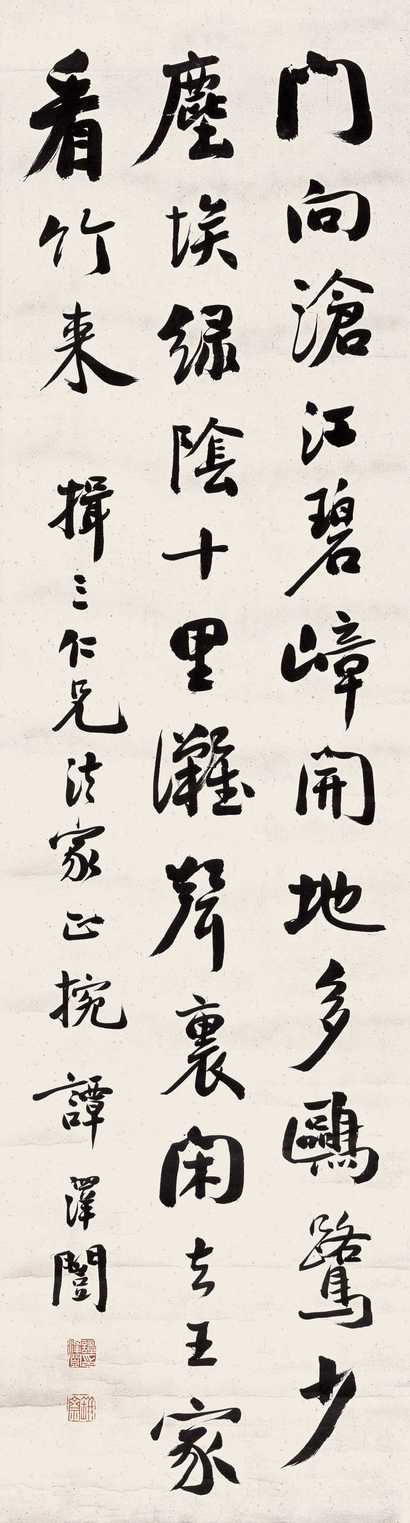 門向滄江碧嶂開地多鷗鷺少
塵埃緑陰十里灘聲裏閑去王家
看竹来 揖三仁兄法家正捥 譚澤闓